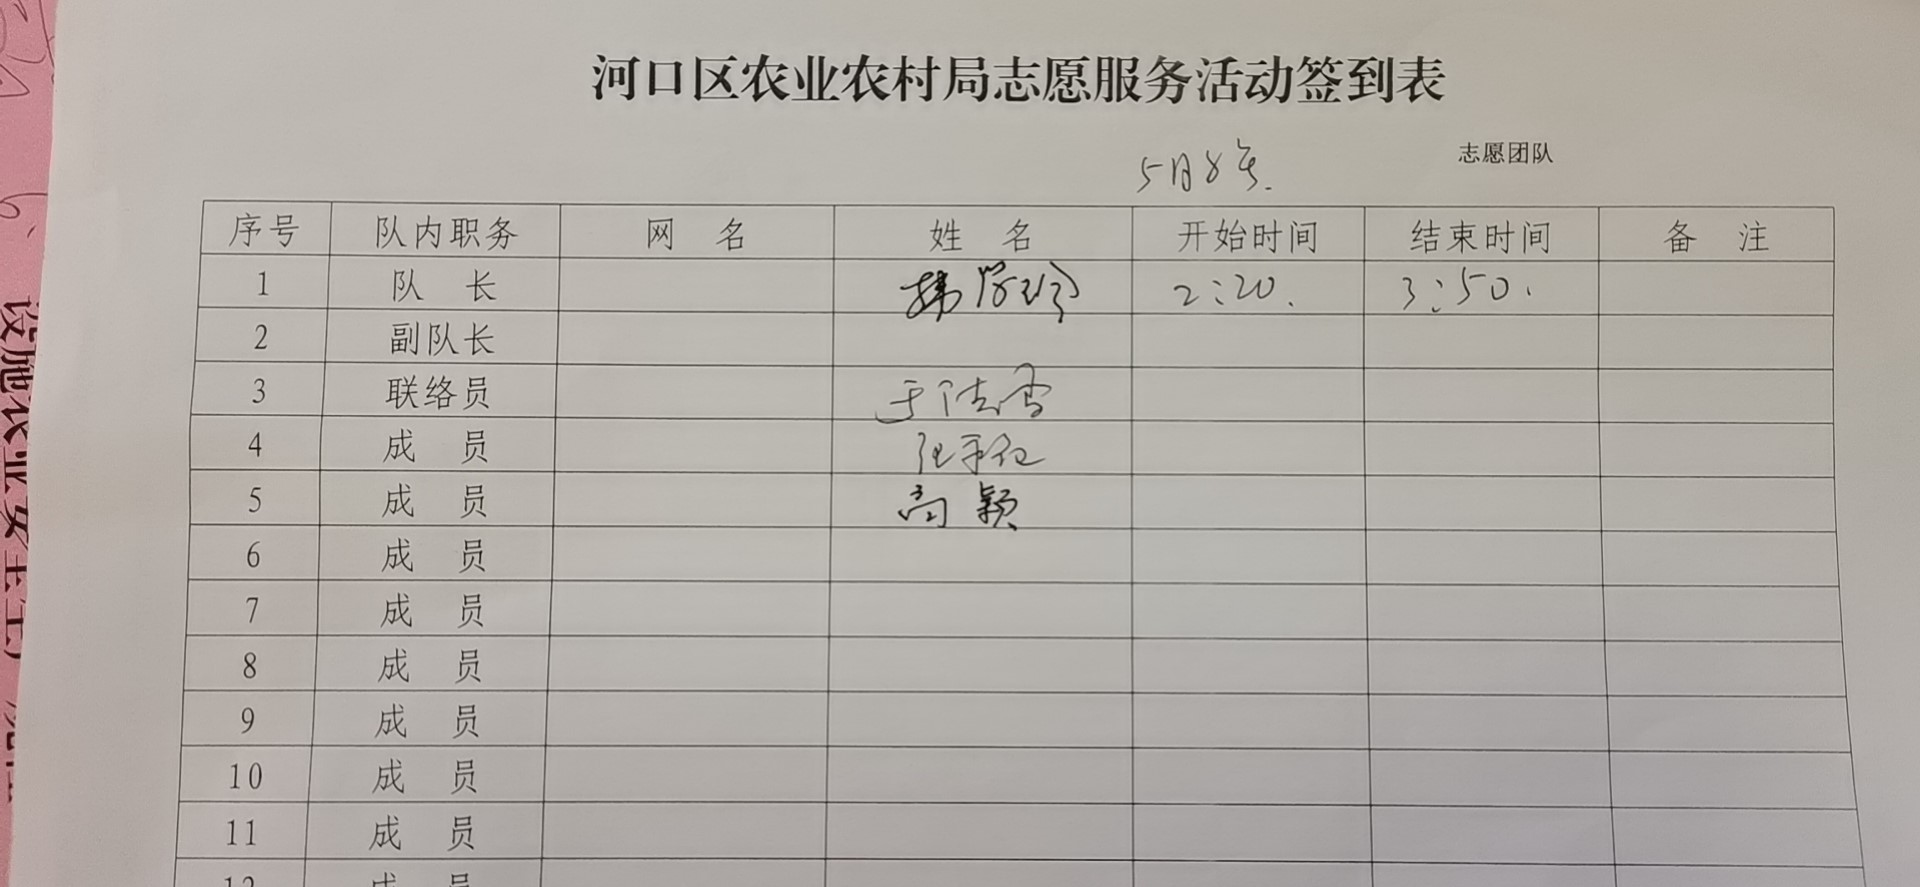 河口区农业农村局志愿服务活动签到表
5月8
志愿团队
序号 队内职务 网 名 姓 名 开始时间 结束时间 备 注
1 队 长 2:20. 3:50.
2 副队长
3 联络员 于
4 成 员
5 成 员 高颖
6 成 员
7 成 员
8 成 员
9 成 员
10 成 员
11 成 员
12 成 员
设施农业安全生产